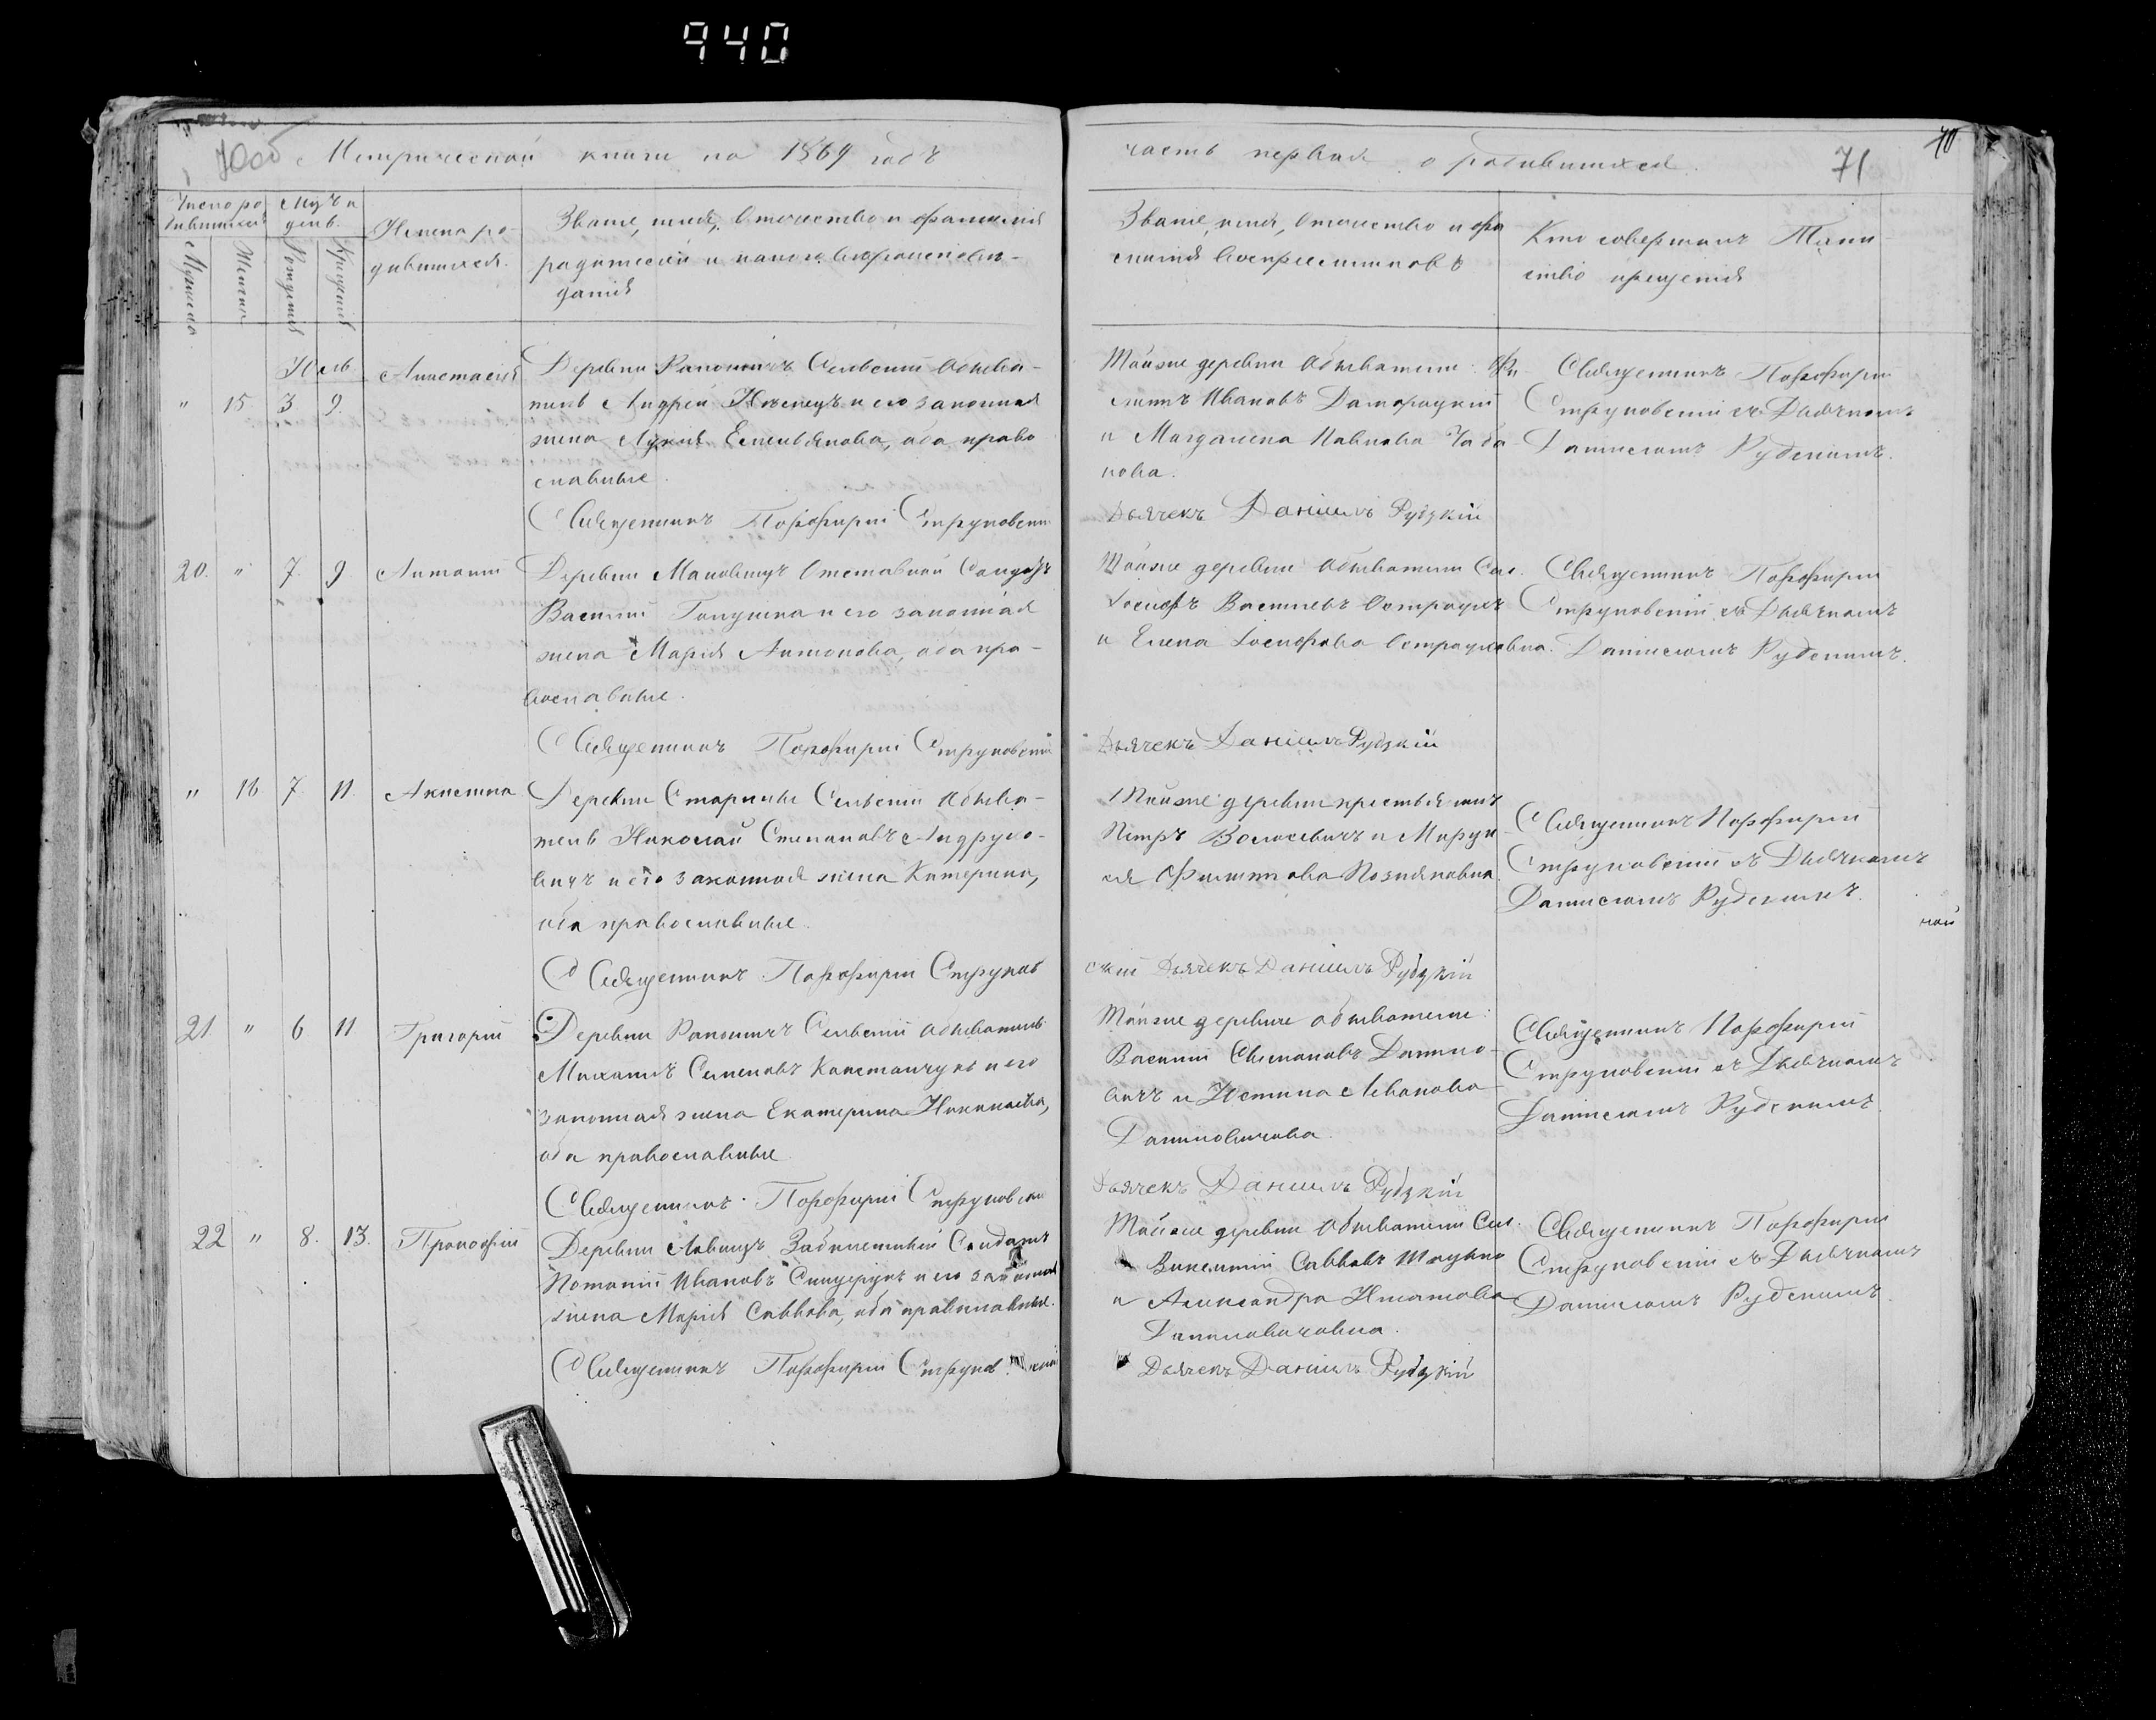 940
70об Метрической книги на 1869 годъ
часть первая о родившихся.
71
70
Число ро
дившихся
Мѣсяцъ и
день.
Мужеска
Женска
Рожденія
Крещенія
Имена ро-
дившихся.
Званіе, имя, отчество и фамилія
родителей и какого вѣроисповѣ-
данія
Званіе, имя, отчество и фа
милія воспріемниковъ
Кто совершалъ Таин
ство крещенія
Юль
" 15. 3 9.
Анастасія
Деревни Сельскій обыва-
тель Андрей и его законная
жена Емельянова, оба право
славные.
Священникъ Порфирій Струковскій
Тойже деревни обыватели: Фи-
липъ Ивановъ Доморацкій
и Магдалена Павлова Чаба-
нова.
Дьячекъ Даніилъ Рудзкій
Священникъ Порфирій
Струковскій съ Дьячкомъ
Даніиломъ Рудскимъ.
20. " 7. 9
Антоній
Деревни Отставной Солдатъ
Василій Галушка и его законная
жена Марія Антонова, оба пра-
вославные.
Священникъ Порфирій Струковскій
Тойже деревни обыватели Сел.
Іосифъ Васильевъ
и Елена Іосифова
Дьячекъ Даніилъ Рудзкій
Священникъ Порфирій
Струковскій съ Дьячкомъ
Даніиломъ Рудскимъ.
" 16 7. 11.
Акилина
Деревни Старины Сельскій обыва-
тель Николай Степановъ Андруко-
вичъ и его законная жена Катерина,
оба православные.
Священникъ Порфирій Струков
Тойже деревни крестьянинъ
Петръ Волосевичъ и Марѳа
Филиппова Познякова
скій Дьячекъ Даніилъ Рудзкій
Священникъ Порфирій
Струковскій съ Дьячкомъ
Даніиломъ Рудскимъ.
кой
21 " 6 11
Григорій
Деревни Сельскій обыватель
Михаилъ Семеновъ Константчукъ и его
законная жена Екатерина Николаева,
оба православные
Священникъ Порфирій Струковскій
Тойже деревни обыватели:
Василій Данило-
вичъ и Юстина Иванова
Даниловичова.
Дьячекъ Даніилъ Рудзкій
Священникъ Порфирій
Струковскій съ Дьячкомъ
Даніиломъ Рудскимъ.
22 " 8. 13.
Прокофій
Деревни Солдатъ
Потапій Ивановъ и его законная
жена Марія Саввова, оба православные.
Священникъ Порфирій Струковскій
Тойже деревни обыватели Сел.
Викентій Саввовъ
и Александра Игнатова
Даниловичовна.
Дьячекъ Даніилъ Рудзкій
Священникъ Порфирій
Струковскій съ Дьячкомъ
Даніиломъ Рудскимъ.